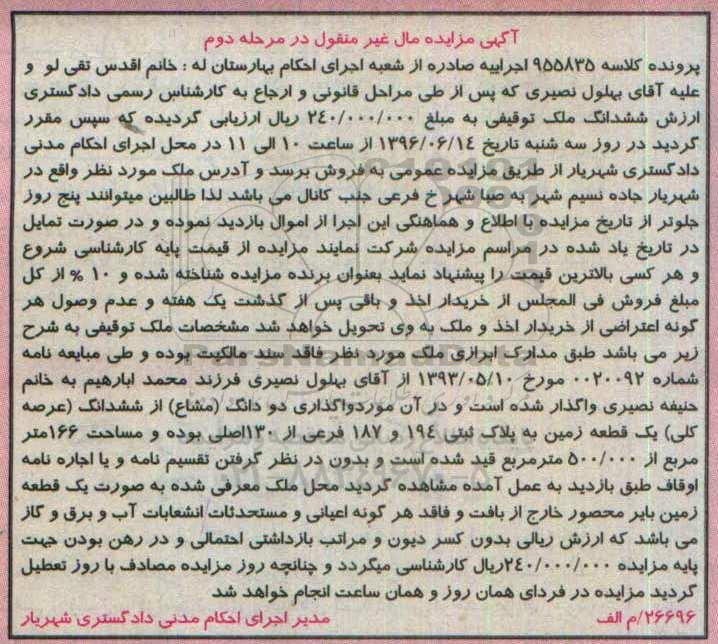 آگهی مزایده مال غیر منقول در مرحله دوم
پرونده کلاسه ۹۵۵۸۳۵ اجراییه صادره از شعبه اجرای احکام بهارستان له : خانم اقدس تقی لو و
علیه آقای بهلول نصیری که پس از طی مراحل قانونی و ارجاع به کارشناس رسمی دادگستری
ارزش ششدانگ ملک توقیفی به مبلغ ۲٤۰/۰۰۰/۰۰۰ ریال ارزیابی گردیده که سپس مقرر
گردید در روز سه شنبه تاریخ ۱۳۹۶/۰۶/۱٤ از ساعت ۱۰ الی ۱۱ در محل اجرای احکام مدنی
دادگستری شهریار از طریق مزایده عمومی به فروش برسد و آدرس ملک مورد نظر واقع در
شهریار جاده نسیم شهر به صبا شهر خ فرعی جنب کانال می باشد لذا طالبین میتوانند پنج روز
جلوتر از تاریخ مزایده با اطلاع و هماهنگی این اجرا از اموال بازدید نموده و در صورت تمایل
در تاریخ یاد شده در مراسم مزایده شرکت نمایند مزایده از قیمت پایه کارشناسی شروع
و هر کسی بالاترین قیمت را پیشنهاد نماید بعنوان برنده مزایده شناخته شده و ۱۰ % از کل
مبلغ فروش فی المجلس از خریدار اخذ و باقی پس از گذشت یک هفته و عدم وصول هر
گونه اعتراضی از خریدار اخذ و ملک به وی تحویل خواهد شد مشخصات ملک توقیفی به شرح
زیر می باشد طبق مدارک ابرازی ملک مورد نظر فاقد سند مالکیت بوده و طی مبایعه نامه
شماره ۰۰۲۰۰۹۲ مورخ ۱۳۹۳/۰۵/۱۰ از آقای بهلول نصیری فرزند محمد ابارهیم به خانم
حنیفه نصیری واگذار شده است و در آن موردواگذاری دو دانگ (مشاع) از ششدانگ (عرصه
کلی) یک قطعه زمین به پلاک ثبتی ۱۹٤ و ۱۸۷ فرعی از ۱۳۰اصلی بوده و مساحت ۱۶۶متر
مربع از ۵۰۰/۰۰۰ مترمربع قید شده است و بدون در نظر گرفتن تقسیم نامه و یا اجاره نامه
اوقاف طبق بازدید به عمل آمده مشاهده گردید محل ملک معرفی شده به صورت یک قطعه
زمین بایر محصور خارج از بافت و فاقد هر گونه اعیانی و مستحدثات انشعابات آب و برق و گاز
می باشد که ارزش ریالی بدون کسر دیون و مراتب بازداشتی احتمالی و در رهن بودن جهت
پایه مزایده ۲٤۰/۰۰۰/۰۰۰ریال کارشناسی میگردد و چنانچه روز مزایده مصادف با روز تعطیل
گردید مزایده در فردای همان روز و همان ساعت انجام خواهد شد
۲۶۶۹۶/م الف
مدیر اجرای احکام مدنی دادگستری شهریار
ParsNamadData